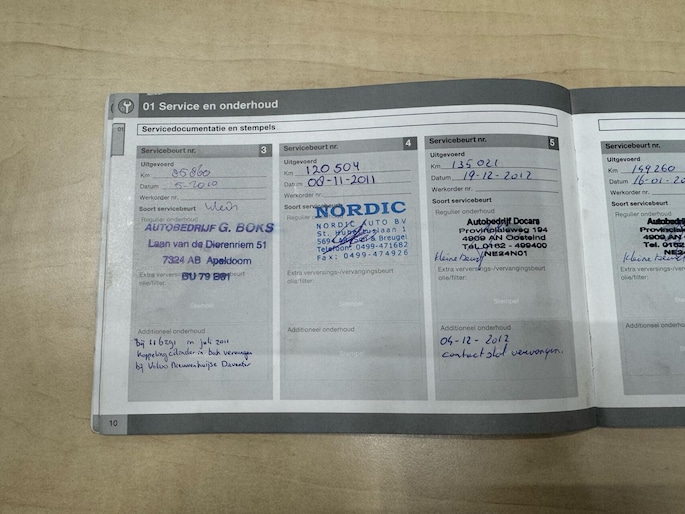 01 Service en onderhoud
01
Servicedocumentatie en stempels
Servicebeurt nr. 3
Uitgevoerd
Km 85860
Datum 5-2010
Werkorder nr.
Soort servicebeurt klein
Regulier onderhoud
AUTOBEDRIJF G. BOKS
Laan van de Dierenriem 51
7324 AB Apeldoorn
BU 79 B61
Extra verversings-/vervangingsbeurt
olie/filter:
Stempel
Additioneel onderhoud
Bij 116291 in juli 2011
koppeling cilinder in bak vervangen
bij Volvo Nieuwenhuijse Deventer
10
Servicebeurt nr. 4
Uitgevoerd
Km 120504
Datum 08-11-2011
Werkorder nr.
Soort servicebeurt
Regulier
NORDIC
NORDIC AUTO BV
St. laan 1
& Breugel
Telefoon: 0499-471682
Fax: 0499-474926
Extra verversings-/vervangingsbeurt
olie/filter:
Stempel
Additioneel onderhoud
Servicebeurt nr. 5
Uitgevoerd
Km 135021
Datum 19-12-2012
Werkorder nr.
Soort servicebeurt
Regulier onderhoud
Autobedrijf Docars
Provincialeweg 194
4909 AN Oosteind
Tel. 0162 - 499400
NE24N01
kleine beurt
Extra verversings-/vervangingsbeurt
olie/filter:
Stempel
Additioneel onderhoud
04-12-2012
contactslot vervangen.
Servicebeurt nr.
Uitgevoerd
Km 149260
Datum 16-01-20
Werkorder nr.
Soort servicebeurt
Regulier onderhoud
Autobedrijf
Provinciale
4909 AN
Tel. 0162
NE2
kleine beurt
Extra verversings-/ver
olie/filter:
Additioneel onderhoud